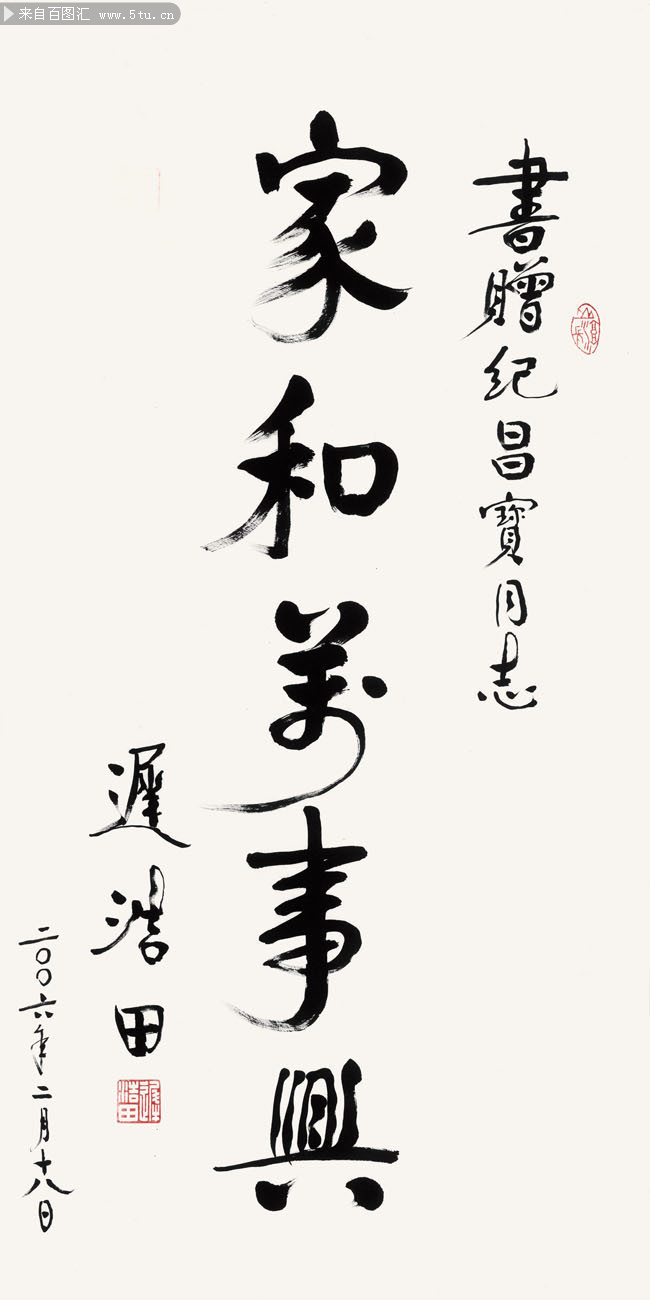 来自百图汇 www.5tu.cn
書贈纪昌寶同志
家和萬事興
遲浩田
二〇〇六年二月十八日
遲浩田